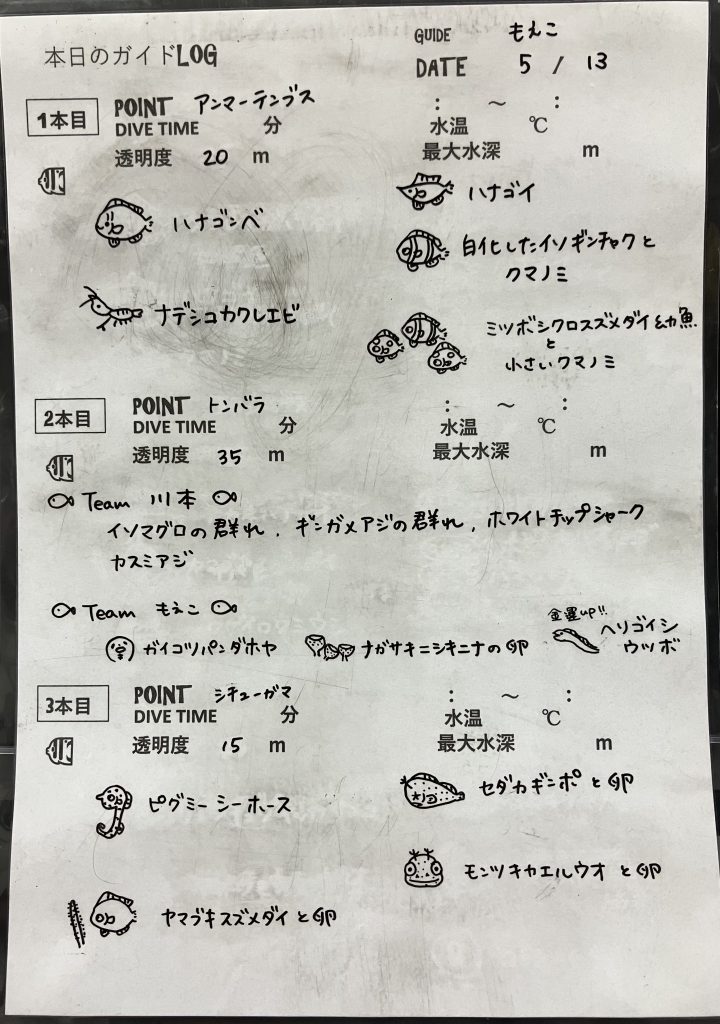 本日のガイドLOG
GUIDE もえこ
DATE 5 / 13
1本目 POINT アンマーテンブス
: ～ :
DIVE TIME 分 水温 ℃
透明度 20 m 最大水深 m
ハナゴンベ
ハナゴイ
白化したイソギンチャクと
クマノミ
ナデシコカクレエビ
ミツボシクロスズメダイ幼魚
と
小さいクマノミ
2本目 POINT トンバラ
: ～ :
DIVE TIME 分 水温 ℃
透明度 35 m 最大水深 m
Team 川本
イソマグロの群れ, ギンガメアジの群れ, ホワイトチップシャーク
カスミアジ
Team もえこ
ガイコツパンダホヤ
ナガサキニシキニナの卵
金運up!!
ヘリゴイシ
ウツボ
3本目 POINT シチューガマ
: ～ :
DIVE TIME 分 水温 ℃
透明度 15 m 最大水深 m
ピグミーシーホース
セダカギンポと卵
モンツキカエルウオと卵
ヤマブキスズメダイと卵